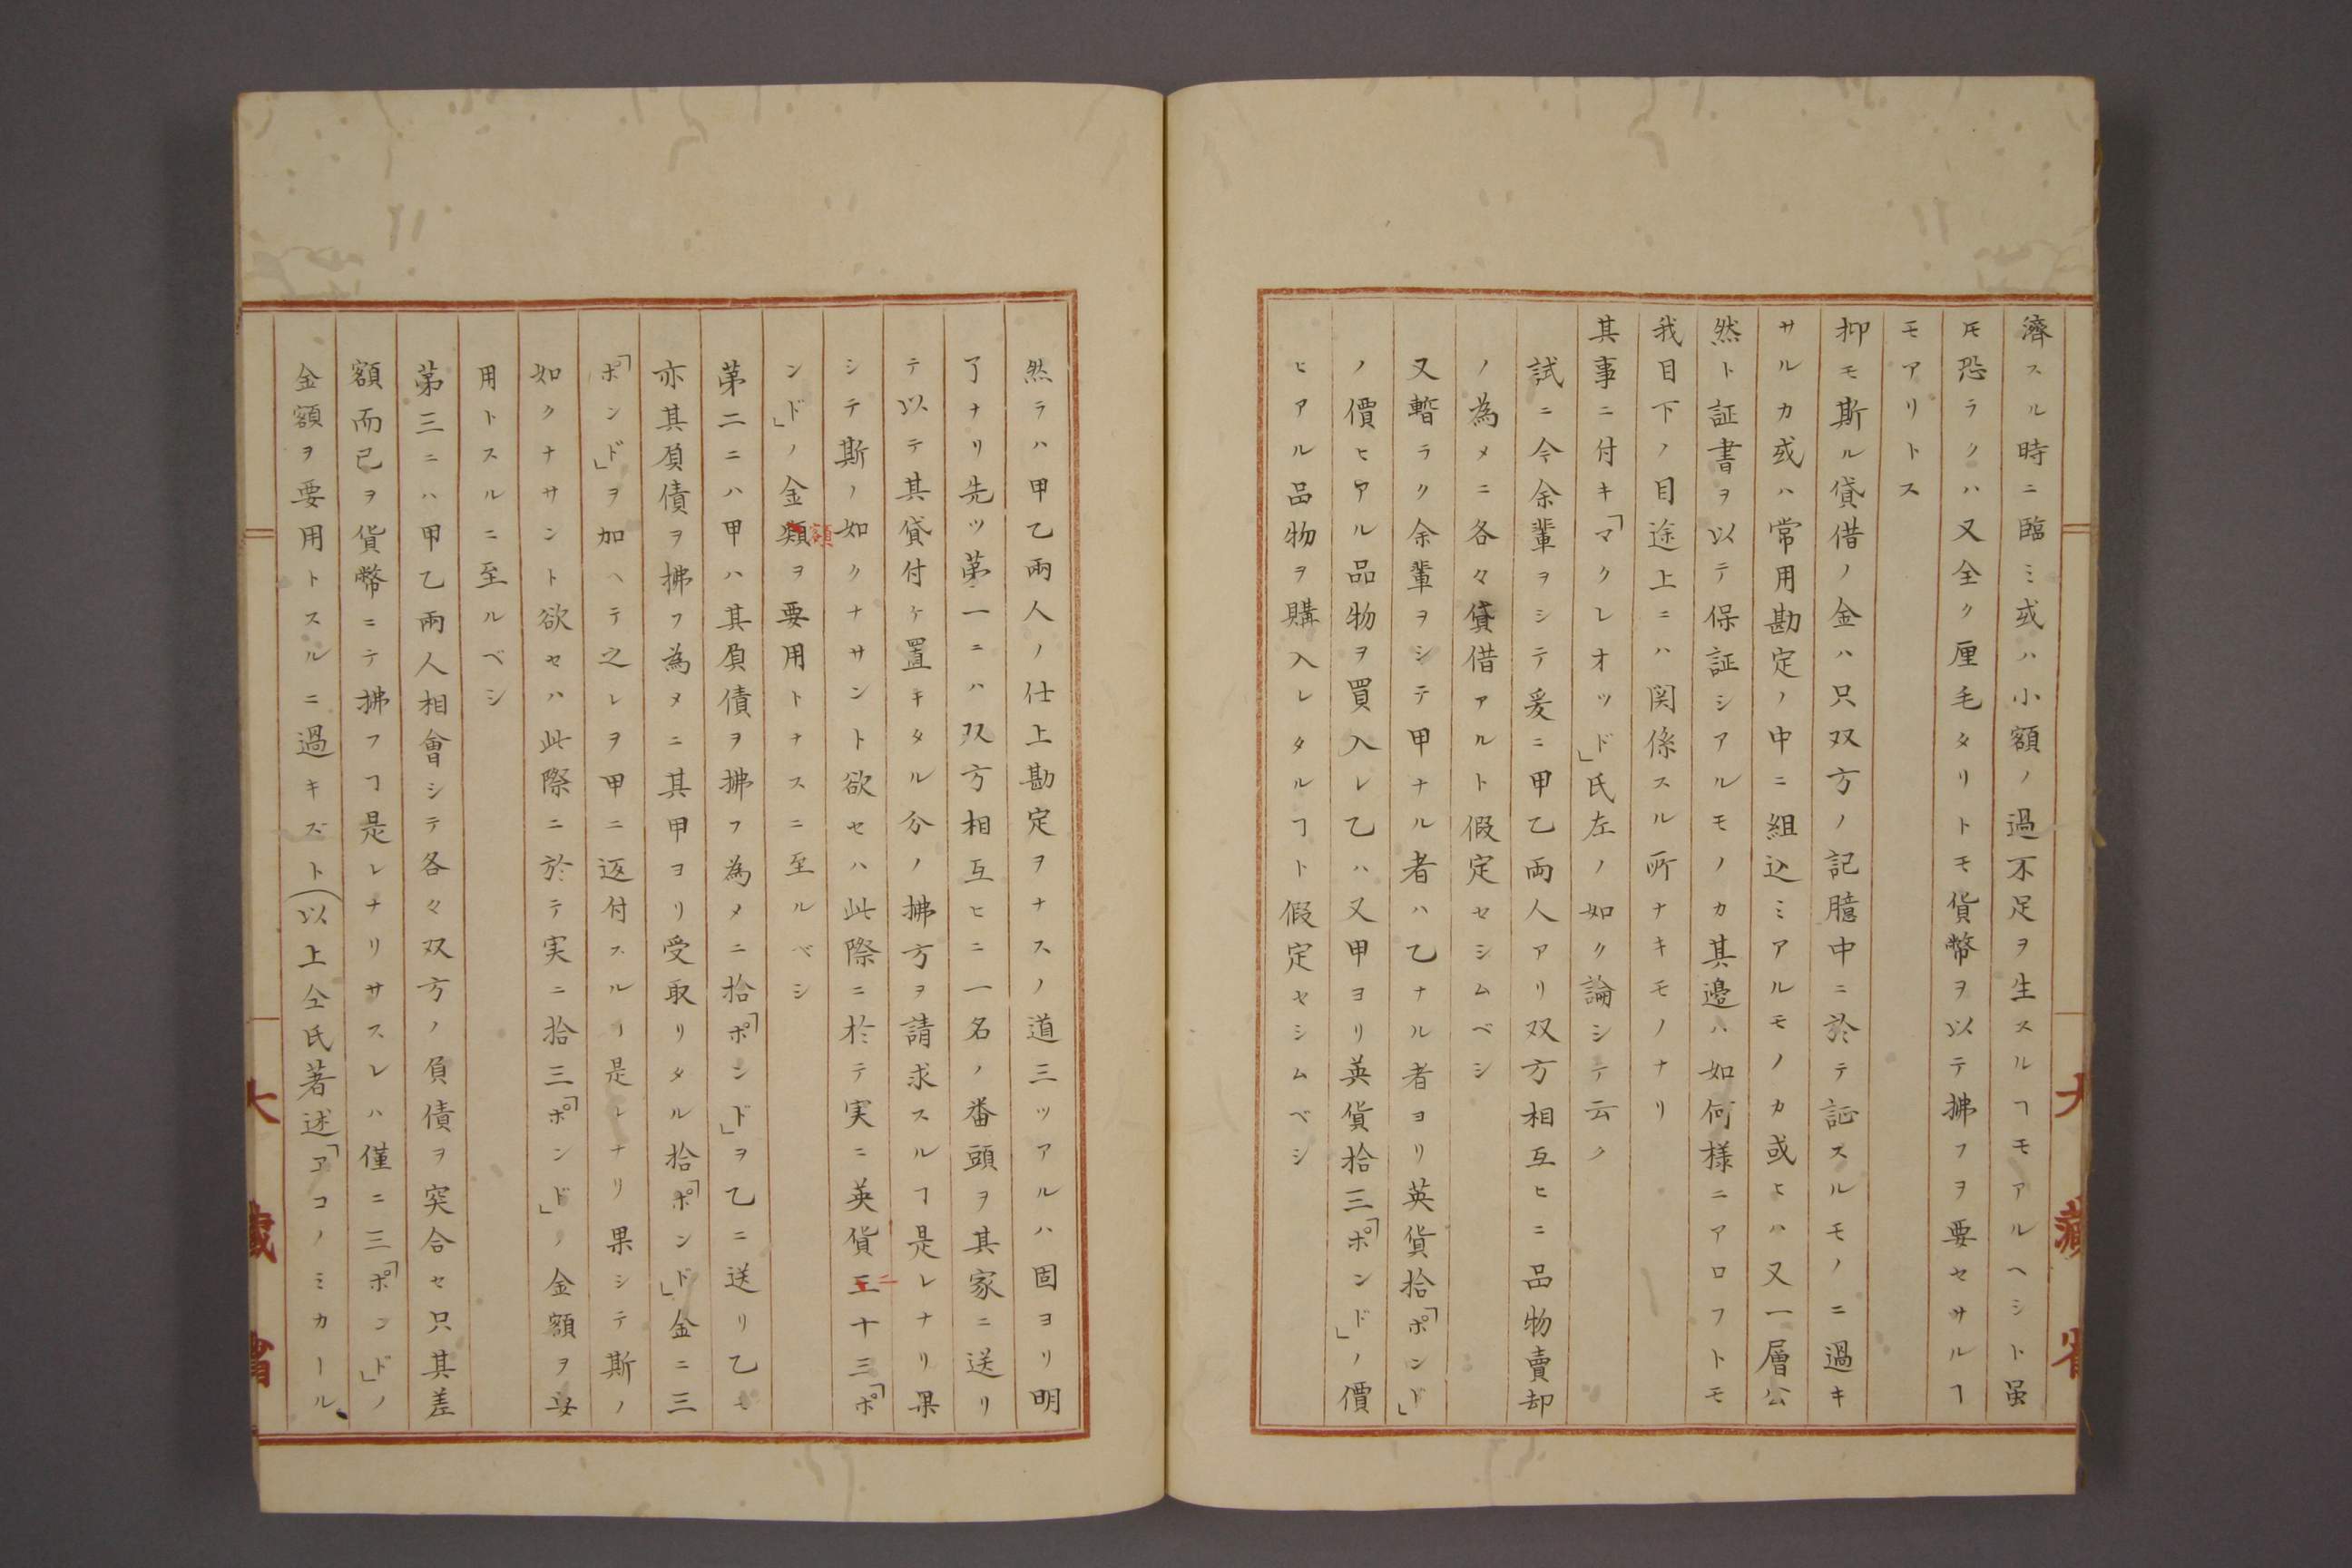 濟スル時ニ臨ミ或ハ小額ノ過不足ヲ生スルヿモアルヘシト虽
𪜈恐ラクハ又全ク厘毛タリトモ貨幣ヲ以テ拂フヲ要セサルヿ
モアリトス
抑モ斯ル貸借ノ金ハ只双方ノ記臆中ニ於テ証スルモノニ過キ
サルカ或ハ常用勘定ノ中ニ組込ミアルモノカ或ヒハ又一層公
然ト証書ヲ以テ保証シアルモノカ其邉ハ如何様ニアロフトモ
我目下ノ目途上ニハ関係スル所ナキモノナリ
其事ニ付キ「マクレオッド」氏左ノ如ク論シテ云ク
試ニ今余輩ヲシテ爰ニ甲乙両人アリ双方相互ヒニ品物賣却
ノ為メニ各々貸借アルト假定セシムベシ
又暫ラク余輩ヲシテ甲ナル者ハ乙ナル者ヨリ英貨拾「ポンド」
ノ價ヒアル品物ヲ買入レ乙ハ又甲ヨリ英貨拾三「ポンド」ノ價
ヒアル品物ヲ購入レタルヿト假定セシムベシ
然ラハ甲乙兩人ノ仕上勘定ヲナスノ道三ツアルハ固ヨリ明
了ナリ先ツ苐一ニハ双方相互ヒニ一名ノ番頭ヲ其家ニ送リ
テ以テ其貸付ケ置キタル分ノ拂方ヲ請求スルヿ是レナリ果
シテ斯ノ如クナサント欲セハ此際ニ於テ実ニ英貨三二十三「ポ
ンド」ノ金類額ヲ要用トナスニ至ルベシ
苐二ニハ甲ハ其負債ヲ拂フ為メニ拾「ポンド」ヲ乙ニ送リ乙モ
亦其負債ヲ拂フ為メニ其甲ヨリ受取リタル拾「ポンド」金ニ三
「ポンド」ヲ加ヘテ之レヲ甲ニ返付スルヿ是レナリ果シテ斯ノ
如クナサント欲セハ此際ニ於テ実ニ拾三「ポンド」ノ金額ヲ要
用トスルニ至ルベシ
苐三ニハ甲乙兩人相會シテ各々双方ノ負債ヲ突合セ只其差
額而已ヲ貨幣ニテ拂フヿ是レナリサスレハ僅ニ三「ポンド」ノ
金額ヲ要用トスルニ過キズト(以上仝氏著述「アコノミカール
大藏省
大藏省